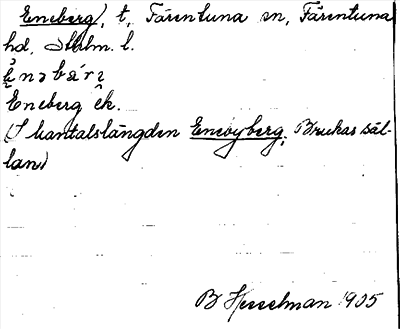 Eneberg), t, Färentuna sn, Färentuna
hd, Sthlm. l.
Eneberg ek.
(I mantalslängden Enebyberg. Brukas säl-
lan)
B Hesselman 1905